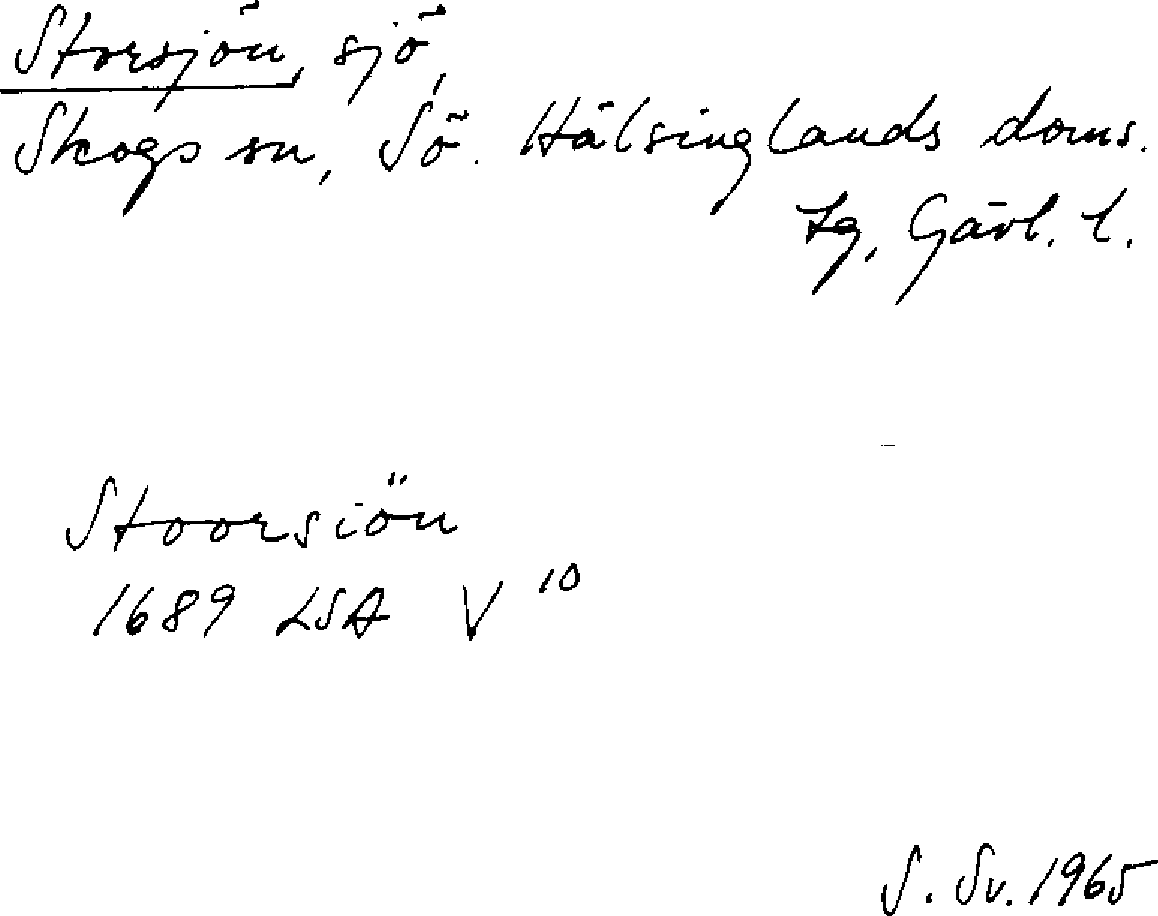 Storsjön, sjö,
Skogs sn, Sö. Hälsinglands doms.
lg, Gävl. l.
Stoorsiön
1689 LSA V 10
S. Sv. 1965